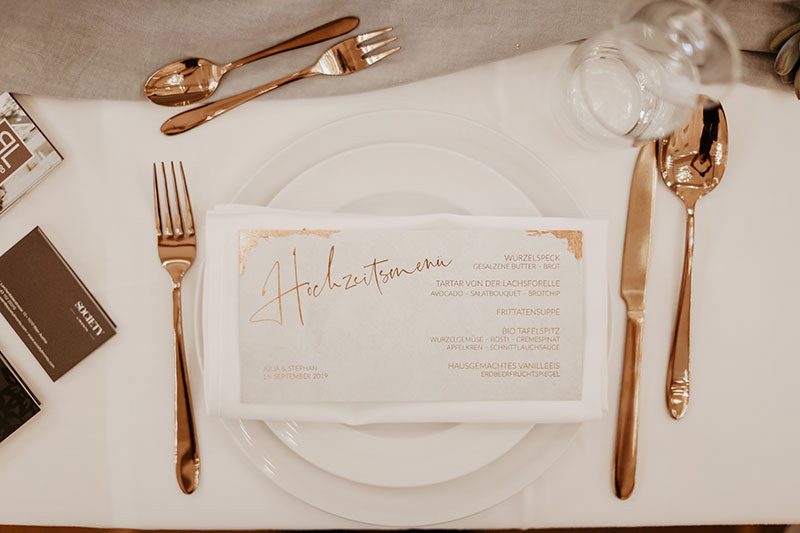 Hochzeitsmenü
JULIA & STEPHAN
15. SEPTEMBER 2019
WURZELSPECK
GESALZENE BUTTER - BROT
TARTAR VON DER LACHSFORELLE
AVOCADO - SALATBOUQUET - BROTCHIP
FRITTATENSUPPE
BIO TAFELSPITZ
WURZELGEMÜSE - RÖSTI - CREMESPINAT
APFELKREN - SCHNITTLAUCHSAUCE
HAUSGEMACHTES VANILLEEIS
ERDBEERFRUCHTSPIEGEL
SOCIETY